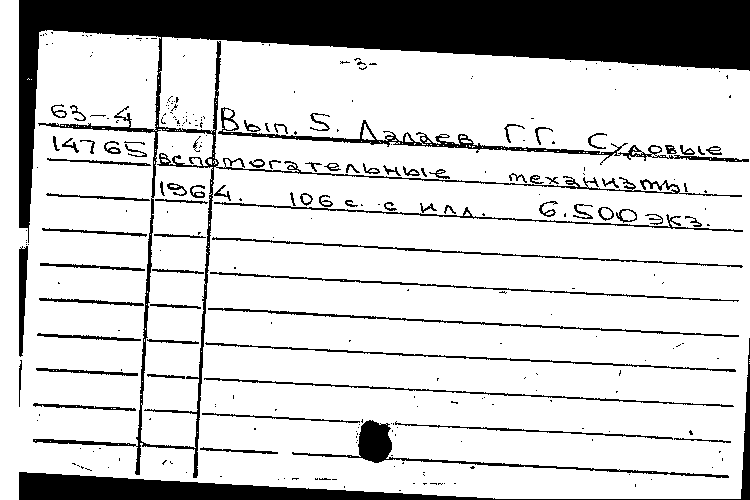 -3-
63-4 Вып. 5. Лалаев, Г.Г. Судовые
14765 вспомогательные механизмы.
1964. 106 с. с илл. 6.500 экз.